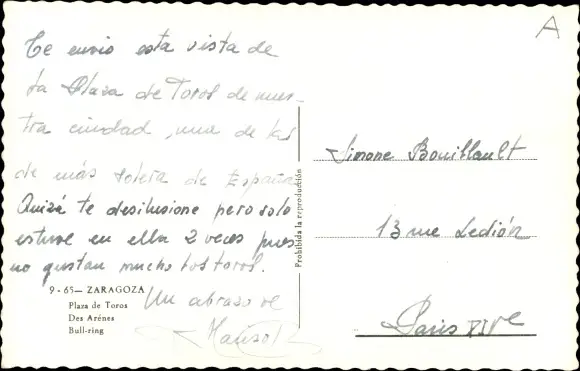 A
Te envio esta vista de
la Plaza de Toros de nues-
tra ciudad, una de las
de más solera de España
Quizá te desilusione pero solo
estuve en ella 2 veces pues
no gustan mucho los toros.
Un abrazo de
Simone Bouillault
13 rue Ledión
Paris XIVe
Prohibida la reproducción
9 - 65 — ZARAGOZA
Plaza de Toros
Des Arénes
Bull-ring